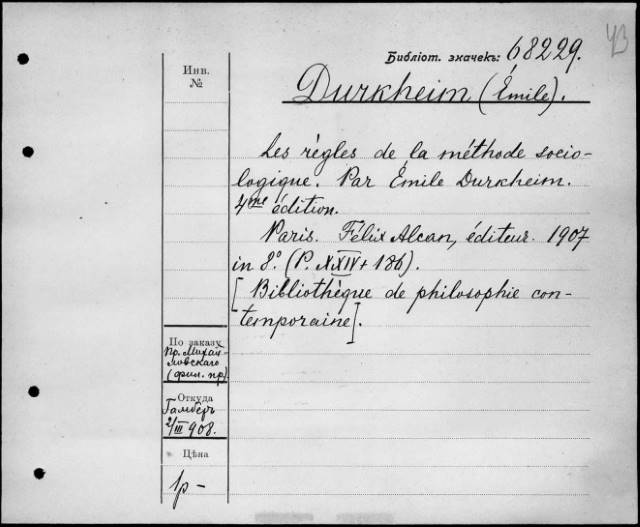 ЧЗ
Библіот. значекъ: 68229.
Инв.
№
Durkheim (Émile).
Les règles de la méthode socio-
logique. Par Émile Durkheim.
4me édition.
Paris. Félix Alcan, éditeur. 1907
in 8°. (P. XXIV + 186).
[Bibliothèque de philosophie con-
temporaine].
По заказу
пр. Михай-
ловскаго
(фил. пр.)
Откуда
Гамберъ
2/III 908.
Цѣна
1р -